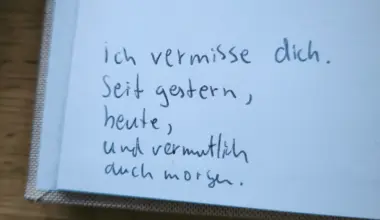 ich vermisse dich.
Seit gestern,
heute,
und vermutlich
auch morgen.